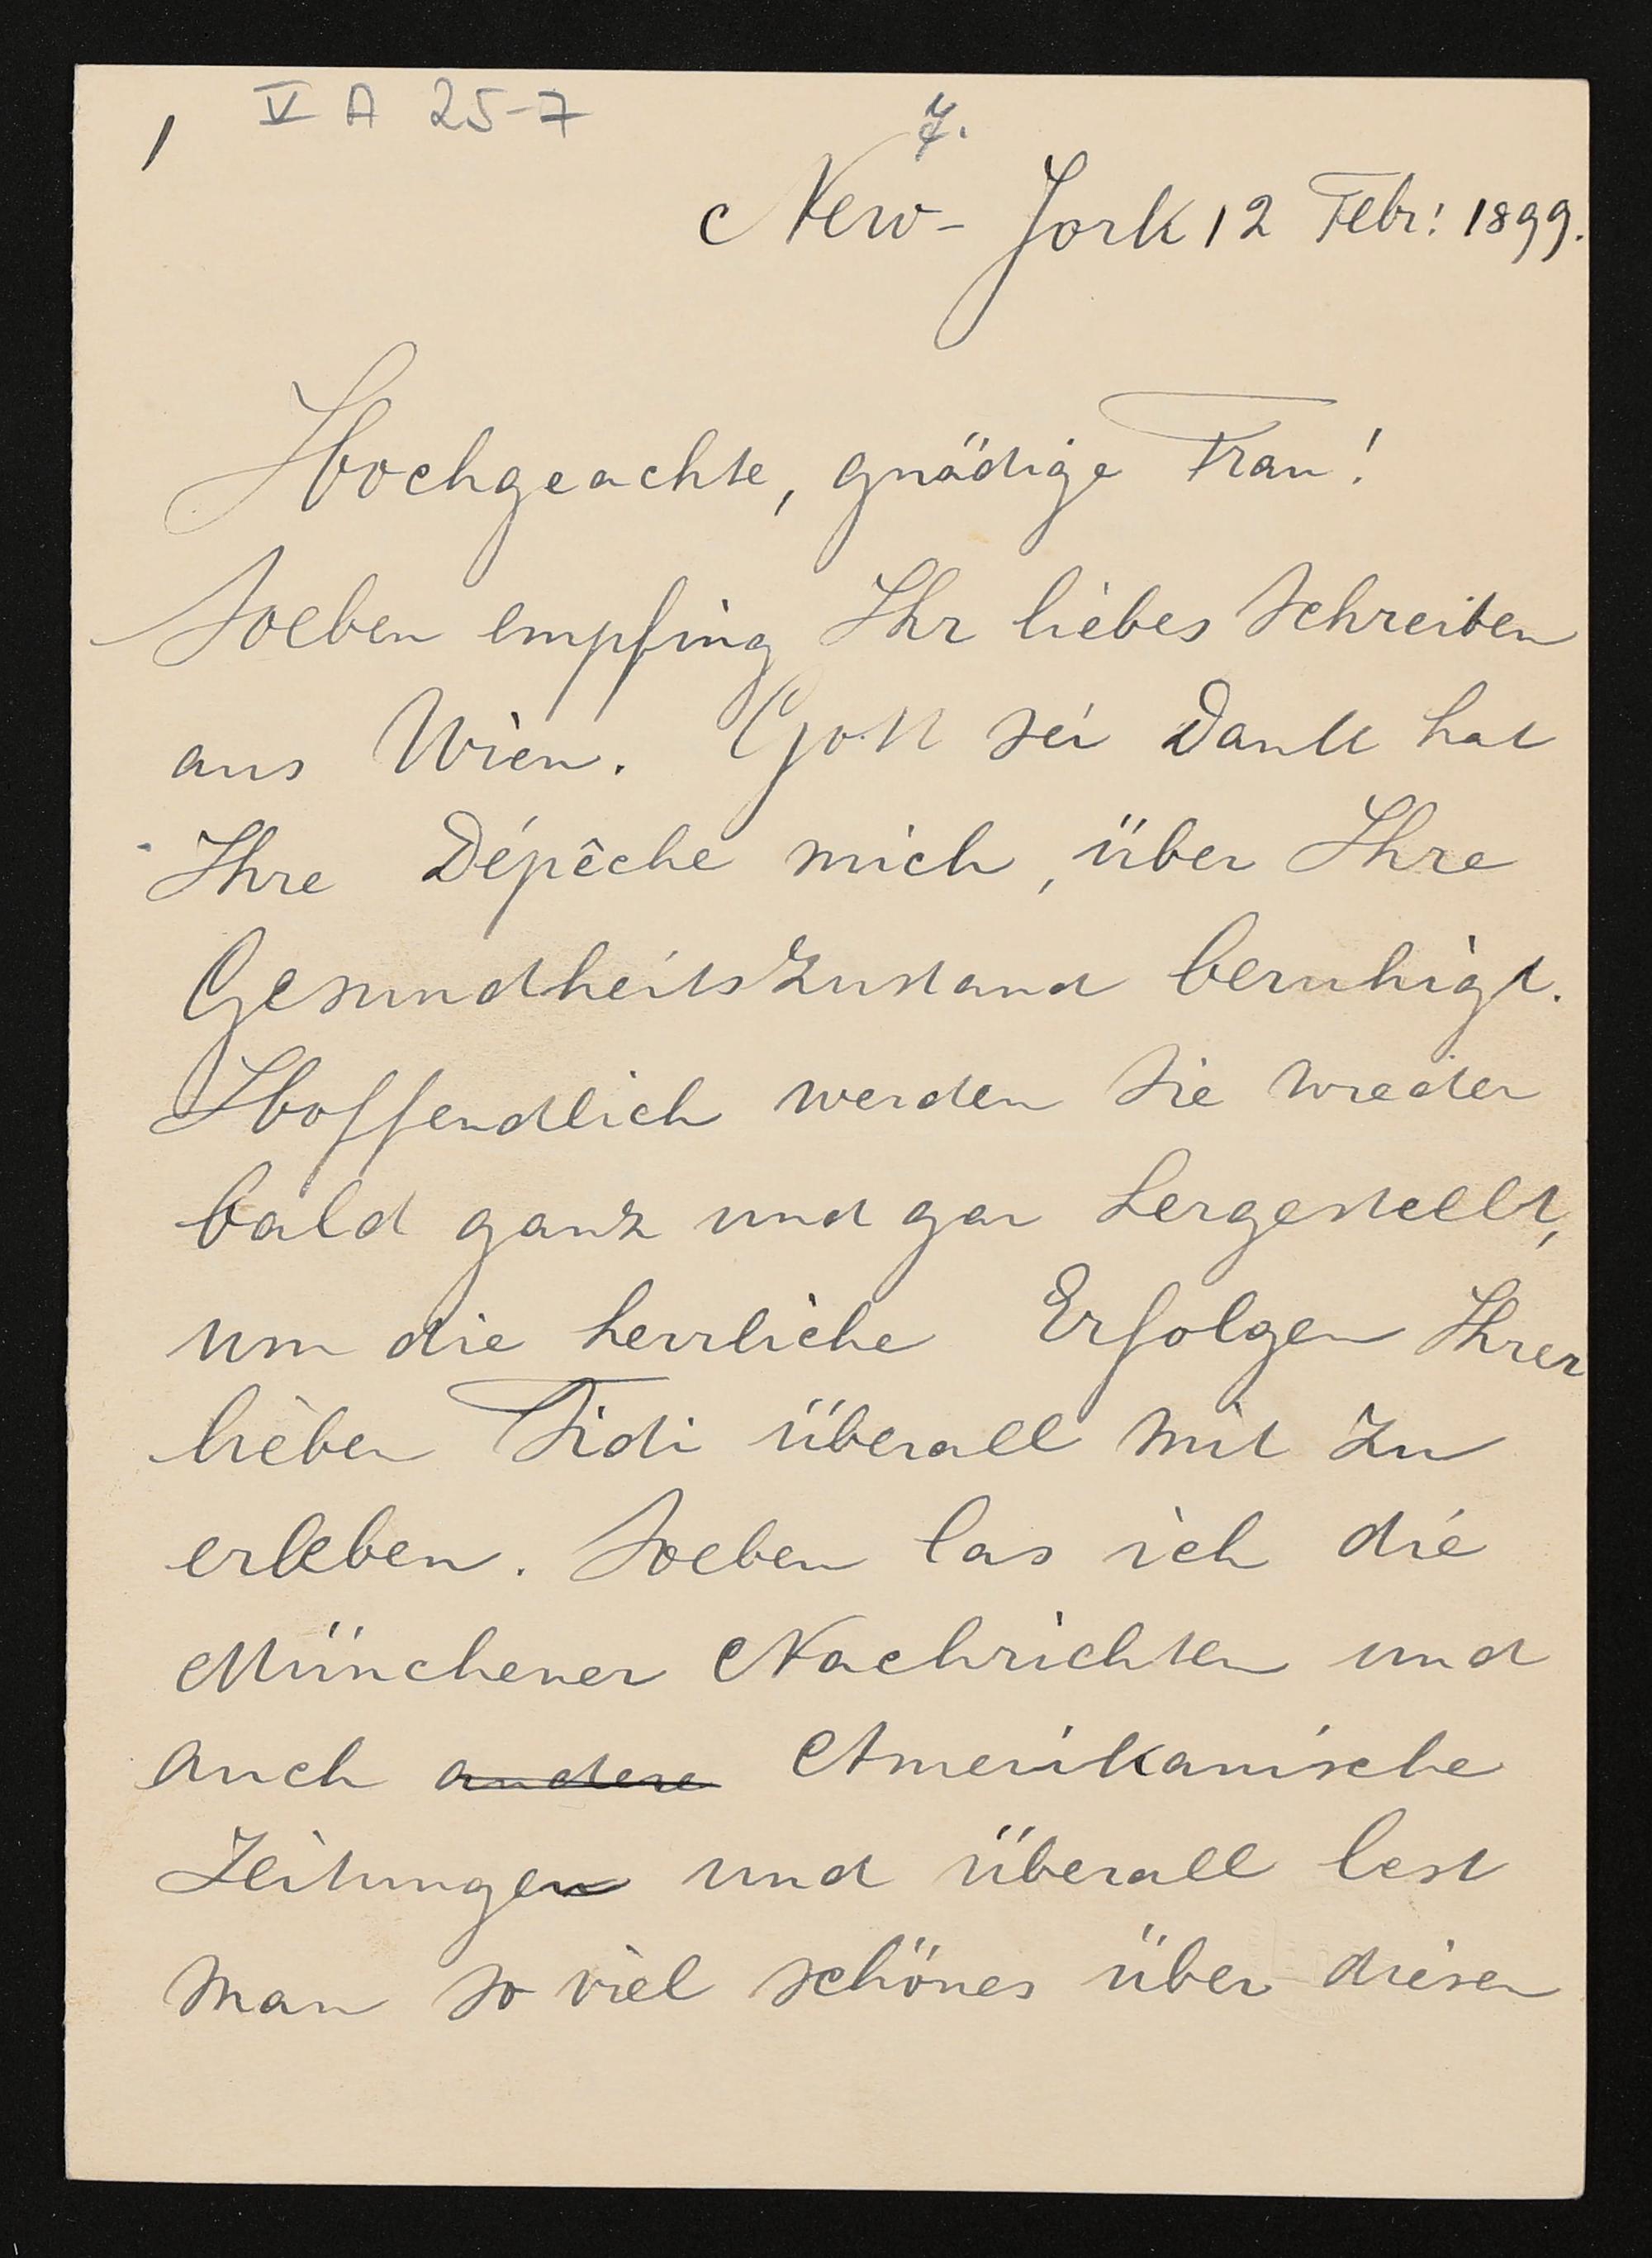 1 V A 25-7
7.
New-York 12 Febr: 1899.
Hochgeachte, gnädige Frau!
Soeben empfing Ihr liebes Schreiben
aus Wien. Gott sei Dank hat
Ihre Dépêche mich, über Ihre
Gesundheitszustand beruhigt.
Hoffendlich werden Sie wieder
bald ganz und gar hergestellt,
um die herrliche Erfolgen Ihrer
lieben Fidi überall mit zu
erleben. Soeben las ich die
Münchener Nachrichten und
auch andere Amerikanische
Zeitungen und überall lest
man so viel schönes über diesen